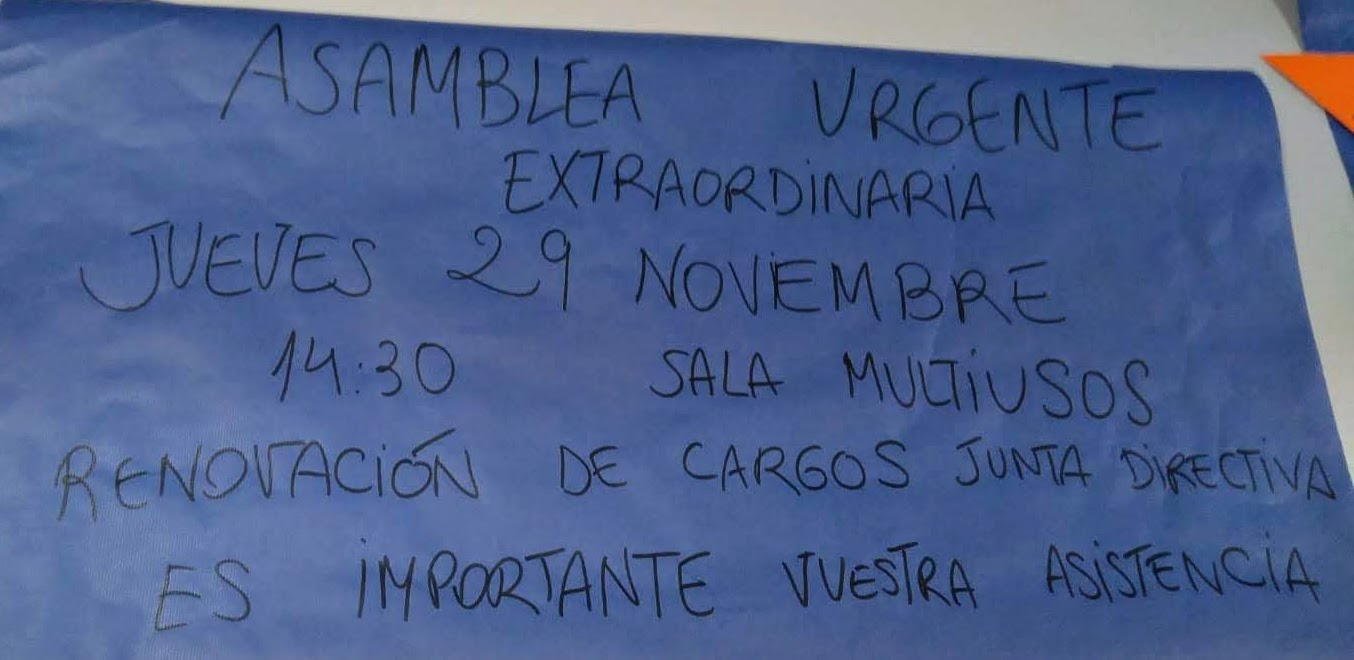 ASAMBLEA URGENTE
EXTRAORDINARIA
JUEVES 29 NOVIEMBRE
14:30 SALA MULTIUSOS
RENOVACIÓN DE CARGOS JUNTA DIRECTIVA
ES IMPORTANTE VUESTRA ASISTENCIA